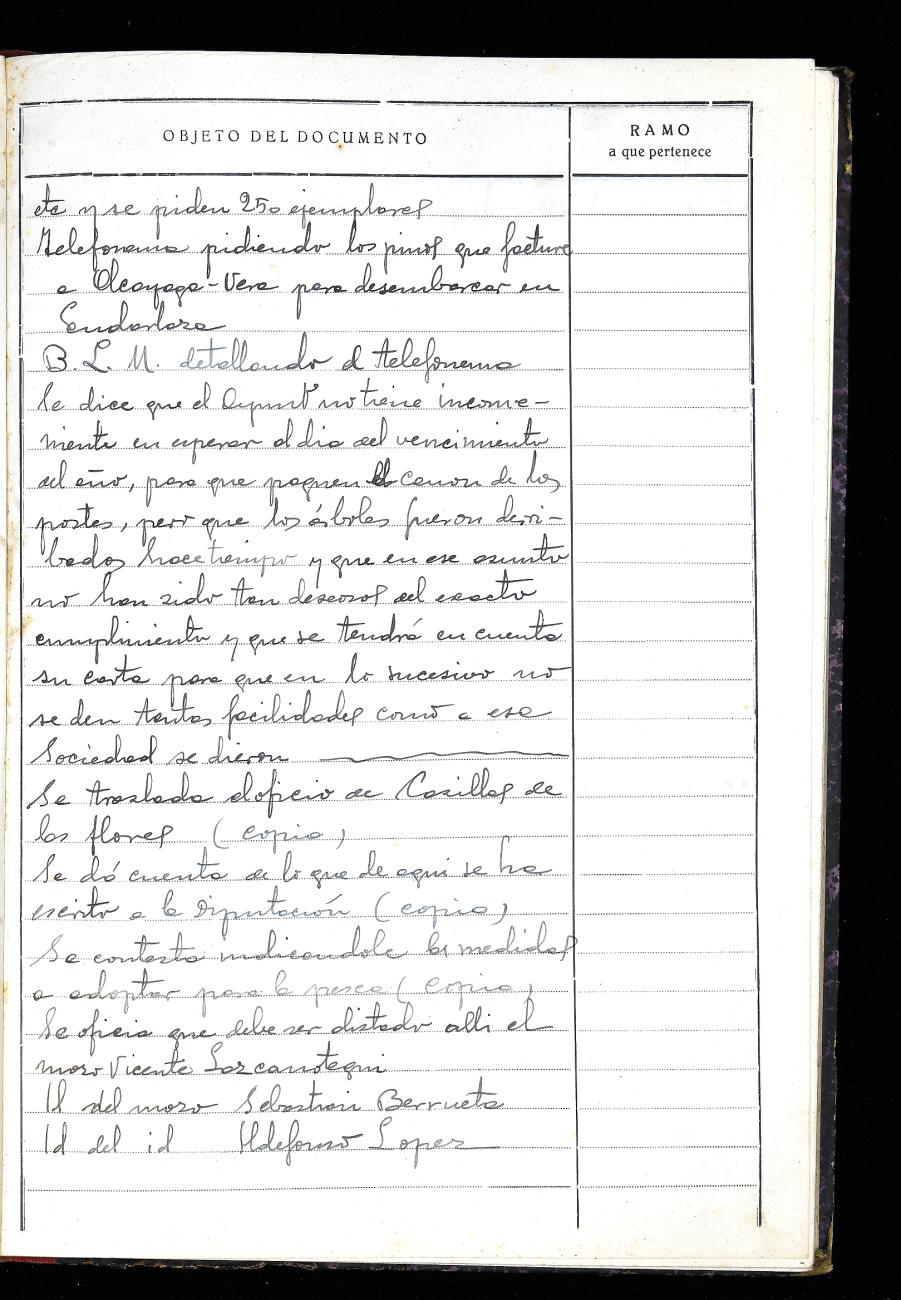 OBJETO DEL DOCUMENTO
RAMO
a que pertenece
etc y se piden 250 ejemplares
Telefonema pidiendo los pinos que factura
a Alcayaga-Vera para desembarcar en
Endarlaza
B. L. M. detallando el telefonema
Se dice que el Ayuntº no tiene inconve-
niente en esperar el dia del vencimiento
del año, para que paguen el canon de los
postes, pero que los árboles fueron derri-
bados hace tiempo y que en ese asunto
no han sido tan deseosos del exacto
cumplimiento y que se tendrá en cuenta
su carta para que en lo sucesivo no
se den tantas facilidades como a esa
Sociedad se dieron
Se traslada el oficio de Casillas de
las flores (copia)
Se dá cuenta de lo que de aqui se ha
escrito a la Diputación (copia)
Se contesta indicandole las medidas
a adoptar para la pesca (copia)
Se oficia que debe ser alistado alli el
mozo Vicente Lazcanotegui
Id del mozo Sebastian Berrueta
Id del id Ildefonso Lopez